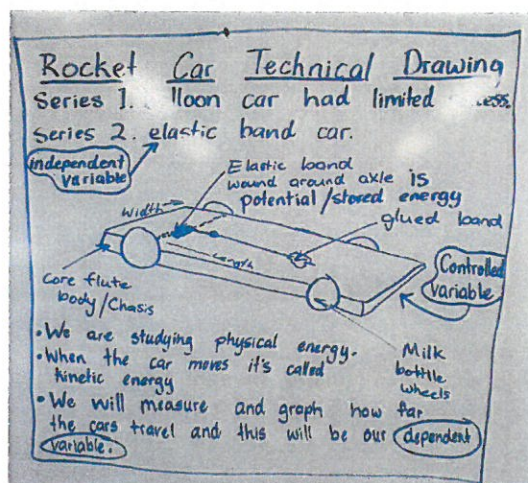 Rocket Car Technical Drawing
Series 1. lloon car had limited ess.
Series 2. elastic band car.
independent
variable
Elastic band
wound around axle is
potential/stored energy
glued band
width
Length
Core flute
body/Chasis
Controlled
variable
Milk
bottle
wheels
• We are studying physical energy.
• When the car moves it's called
kinetic energy
• We will measure and graph how far
the cars travel and this will be our dependent
variable.